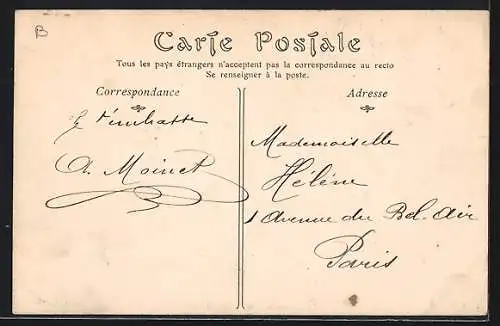 B
Carte Postale
Tous les pays étrangers n'acceptent pas la correspondance au recto
Se renseigner à la poste.
Correspondance
Je t'embrasse
A. Moinet
Adresse
Mademoiselle
Hélène
1 Avenue du Bel-Air
Paris